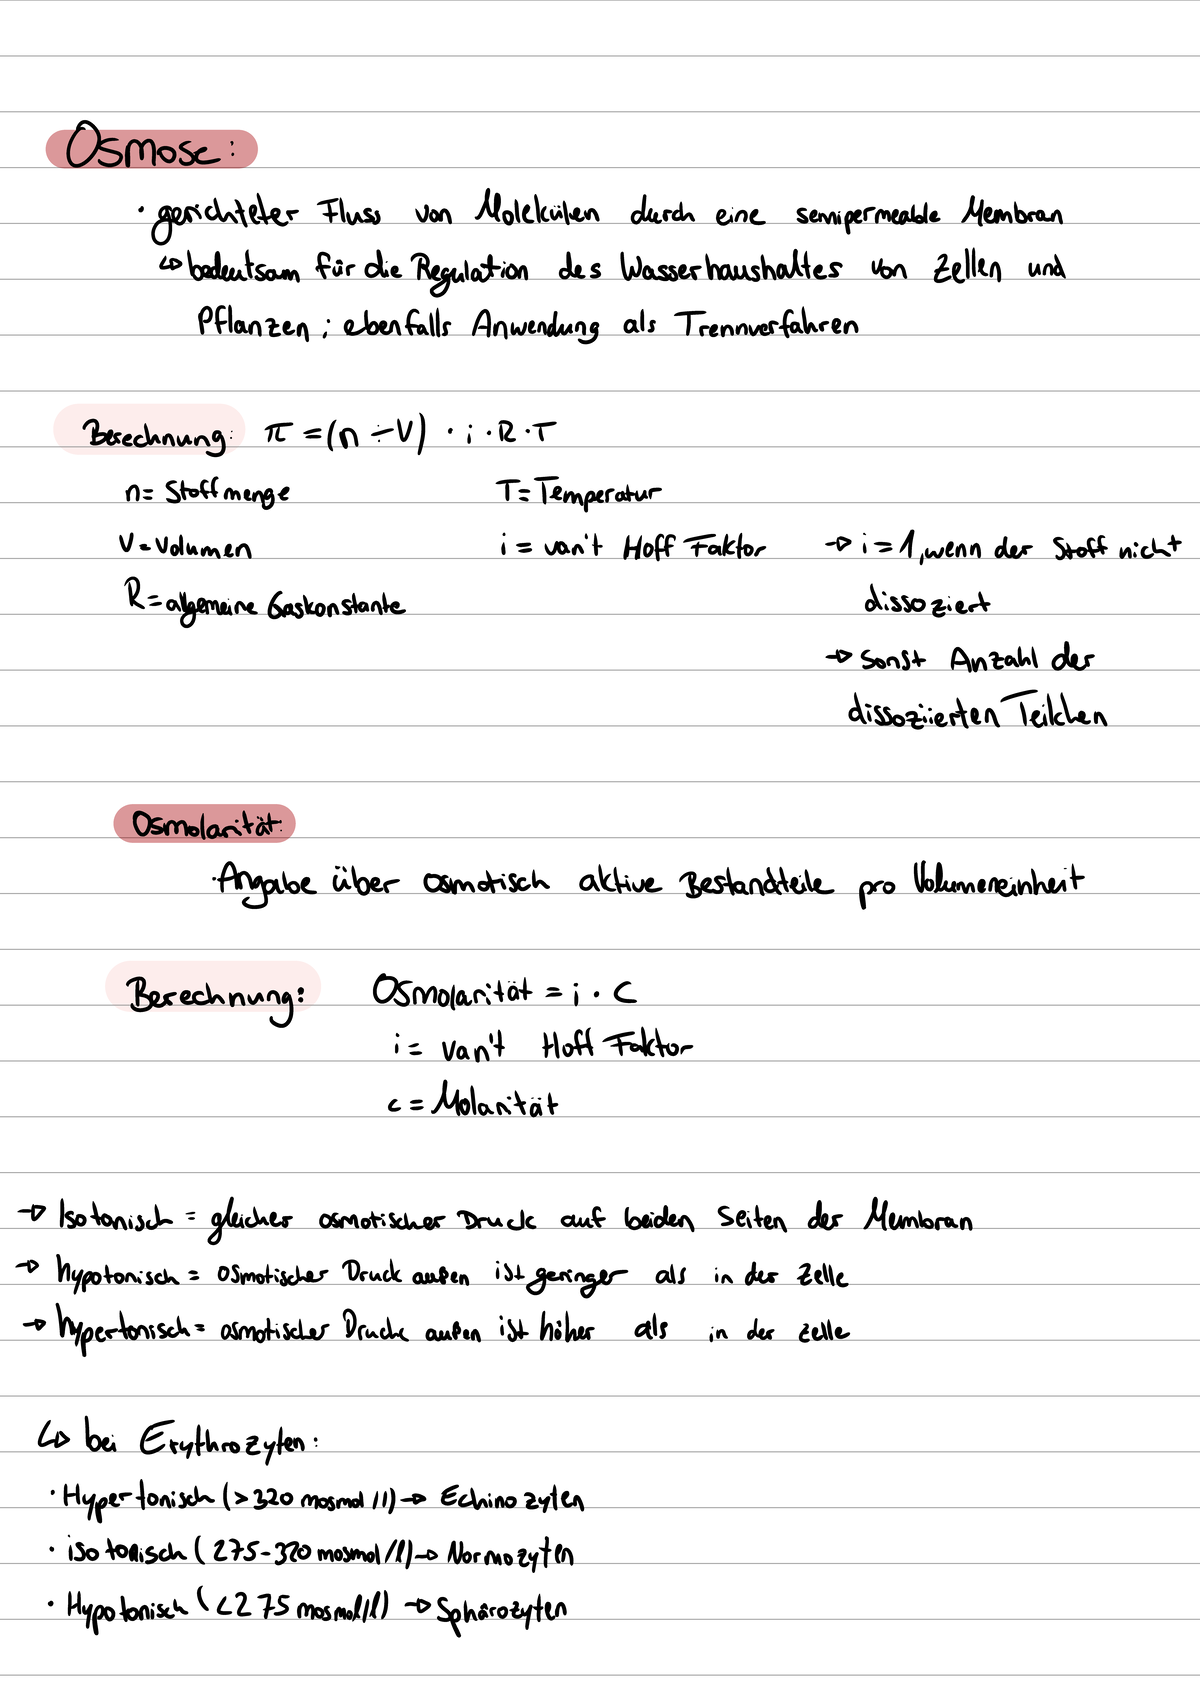 Osmose:
· gerichteter Fluss von Molekülen durch eine semipermeable Membran
↳ bedeutsam für die Regulation des Wasserhaushaltes von Zellen und
Pflanzen; ebenfalls Anwendung als Trennverfahren
Berechnung: π = (n ÷ V) · i · R · T
n = Stoffmenge T = Temperatur
V = Volumen i = van't Hoff Faktor → i = 1, wenn der Stoff nicht
R = allgemeine Gaskonstante dissoziert
→ sonst Anzahl der
dissoziierten Teilchen
Osmolarität:
· Angabe über osmotisch aktive Bestandteile pro Volumeneinheit
Berechnung: Osmolarität = i · c
i = van't Hoff Faktor
c = Molarität
→ Isotonisch = gleicher osmotischer Druck auf beiden Seiten der Membran
→ hypotonisch = osmotischer Druck außen ist geringer als in der Zelle
→ hypertonisch = osmotischer Druck außen ist höher als in der Zelle
↳ bei Erythrozyten:
· Hypertonisch (> 320 mosmol/l) → Echinozyten
· isotonisch (275-320 mosmol/l) → Normozyten
· Hypotonisch (< 275 mosmol/l) → Sphärozyten